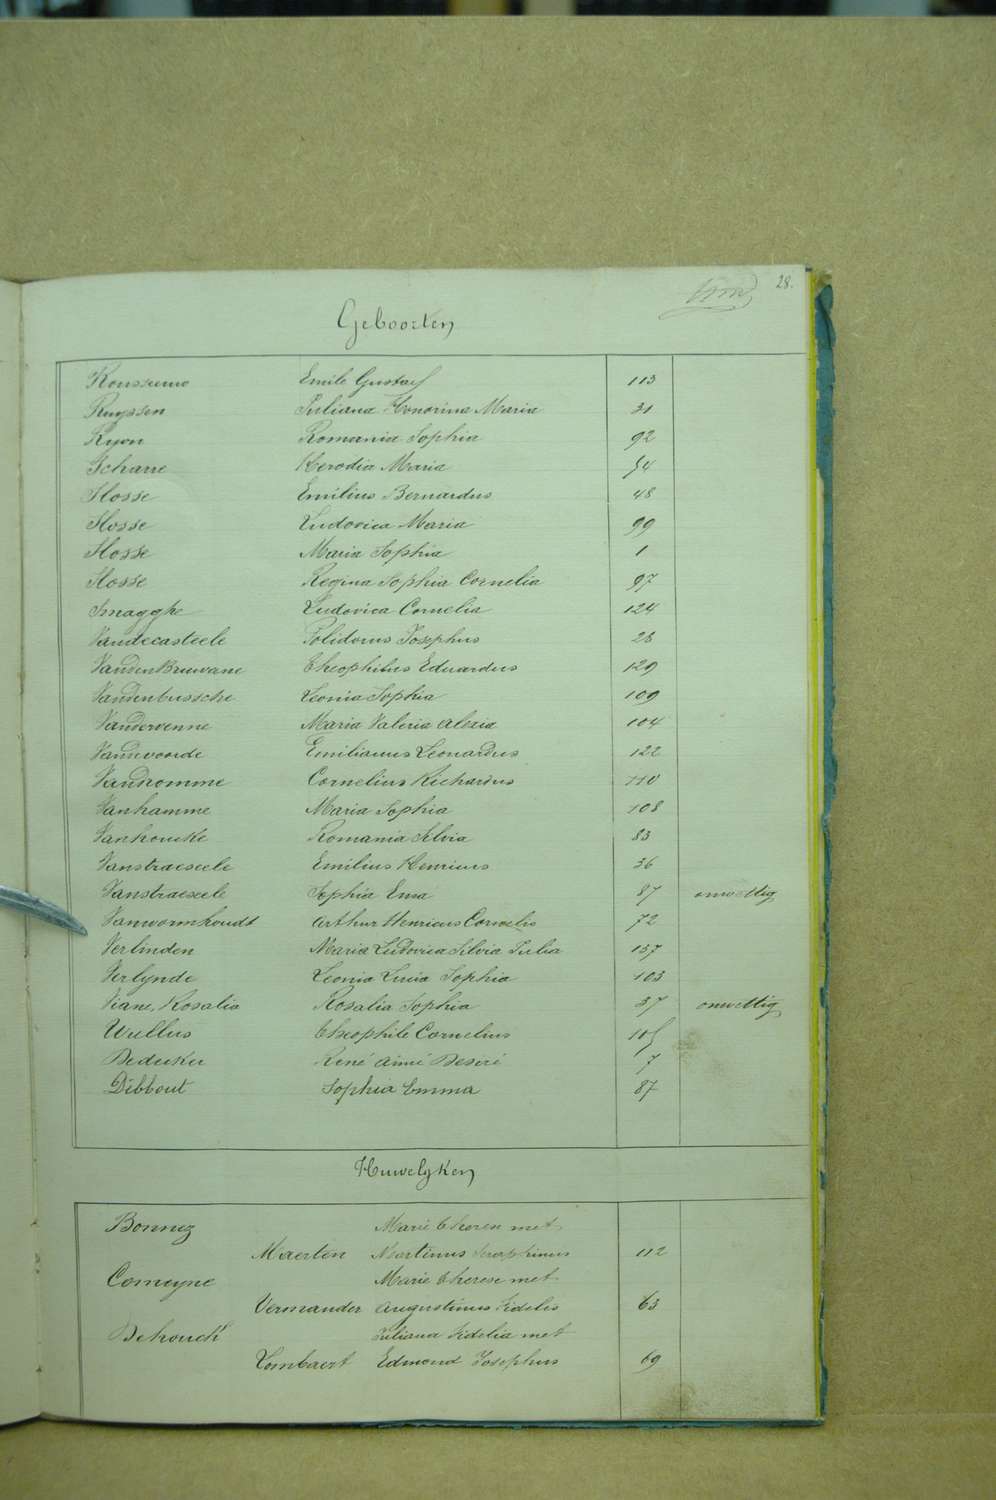 28.
Geboorten
Rousseruo Emile Gustaf 113
Ruyssen Juliana Honorina Maria 31
Ryon Romania Sophia 92
Scharre Herodia Maria 54
Slosse Emilius Bernardus 48
Slosse Ludovica Maria 99
Slosse Maria Sophia 1
Slosse Regina Sophia Cornelia 97
Smagghe Ludovica Cornelia 124
Vandecasteele Polidorus Josephus 28
VandenBruwane Theophilus Eduardus 129
Vandenbussche Leonia Sophia 109
Vandervenne Maria Valeria Alexia 104
Vandevoorde Emilianus Leonardus 122
Vandromme Cornelius Richardus 110
Vanhamme Maria Sophia 108
Vanhoucke Romania Silvia 83
Vanstraeseele Emilius Henricus 36
Vanstraeseele Sophia Ema 87 onwettig
Vanwormhoudt Arthur Henricus Cornelis 72
Verlinden Maria Ludovica Silvia Julia 137
Verlynde Leonia Lucia Sophia 103
Viane, Rosalia Rosalia Sophia 37 onwettig
Wullus Theophile Cornelius 105
Deduker René Aimé Desiré 7
Debbout Sophia Emma 87
Huwelyken
Bonnez Marie Theren met
Maerten Martinus Seraphinus 112
Comeyne Marie Therese met
Vermander Augustinus Fidelis 63
Dehouck Juliana Fidelia met
Lombaert Edmond Josephus 69